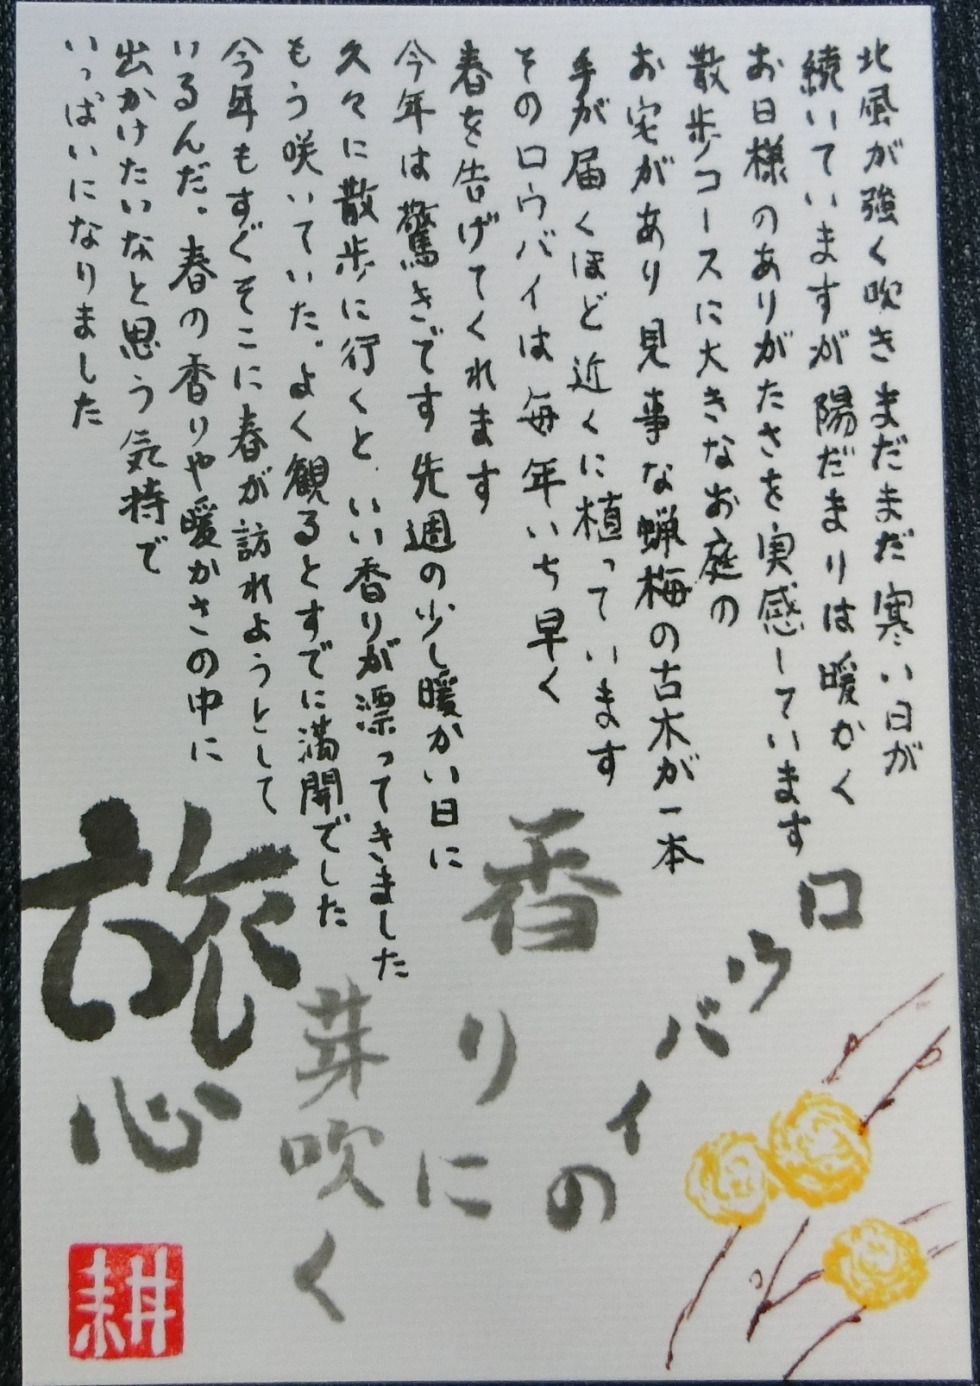 北風が強く吹きまだまだ寒い日が
続いていますが陽だまりは暖かく
お日様のありがたさを実感しています
散歩コースに大きなお庭の
お宅があり見事な蝋梅の古木が一本
手が届くほど近くに植っています
そのロウバイは毎年いち早く
春を告げてくれます
今年は驚きです先週の少し暖かい日に
久々に散歩に行くと、いい香りが漂ってきました
もう咲いていた。よく観るとすでに満開でした
今年もすぐそこに春が訪れようとして
いるんだ。春の香りや暖かさの中に
出かけたいなと思う気持で
いっぱいになりました
ロウバイの
香りに
芽吹く
旅心
耕